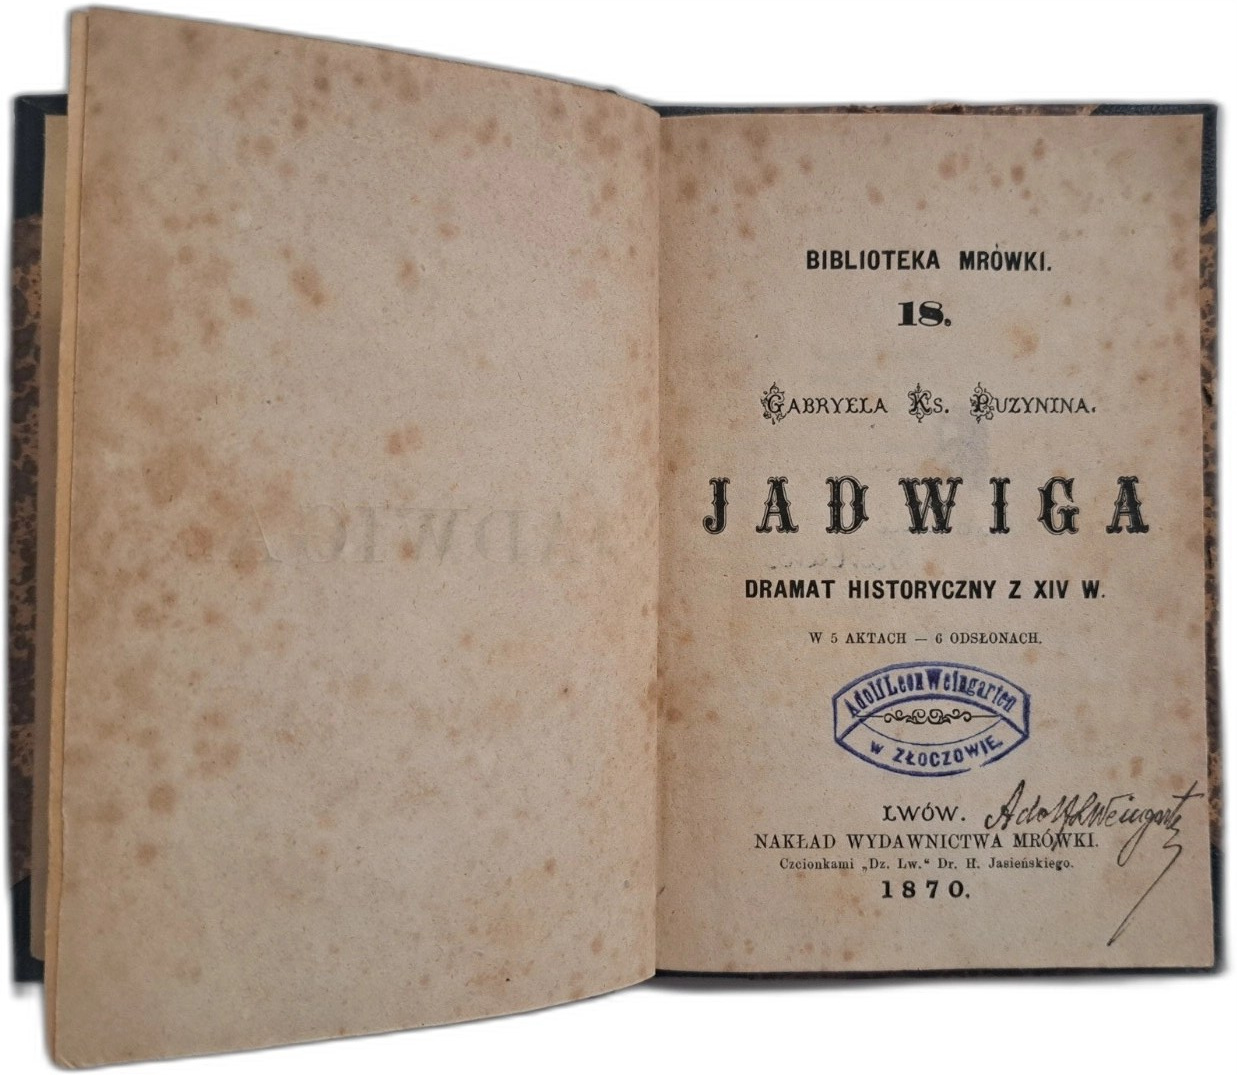 BIBLIOTEKA MRÓWKI.
18.
GABRYELA KS. PUZYNINA.
JADWIGA
DRAMAT HISTORYCZNY Z XIV W.
W 5 AKTACH — 6 ODSŁONACH.
Adolf Leon Weingarten
W ZŁOCZOWIE
LWÓW.
Adolf L Weingarten
NAKŁAD WYDAWNICTWA MRÓWKI.
Czcionkami „Dz. Lw.“ Dr. H. Jasieńskiego.
1870.
JADWIGA